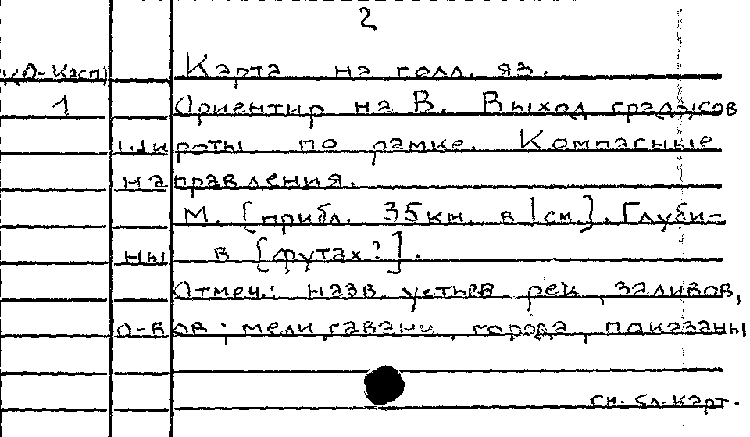 2
Карта на голл. яз.
1 Ориентир на В. Выход градусов
широты по рамке. Компасные
направления.
М. [прибл. 35 км. в 1 см.]. Глуби-
ны в [футах?].
Отмеч.: назв. устьев рек, заливов,
о-вов; мели, гавани, города, показаны
см. бл. карт.